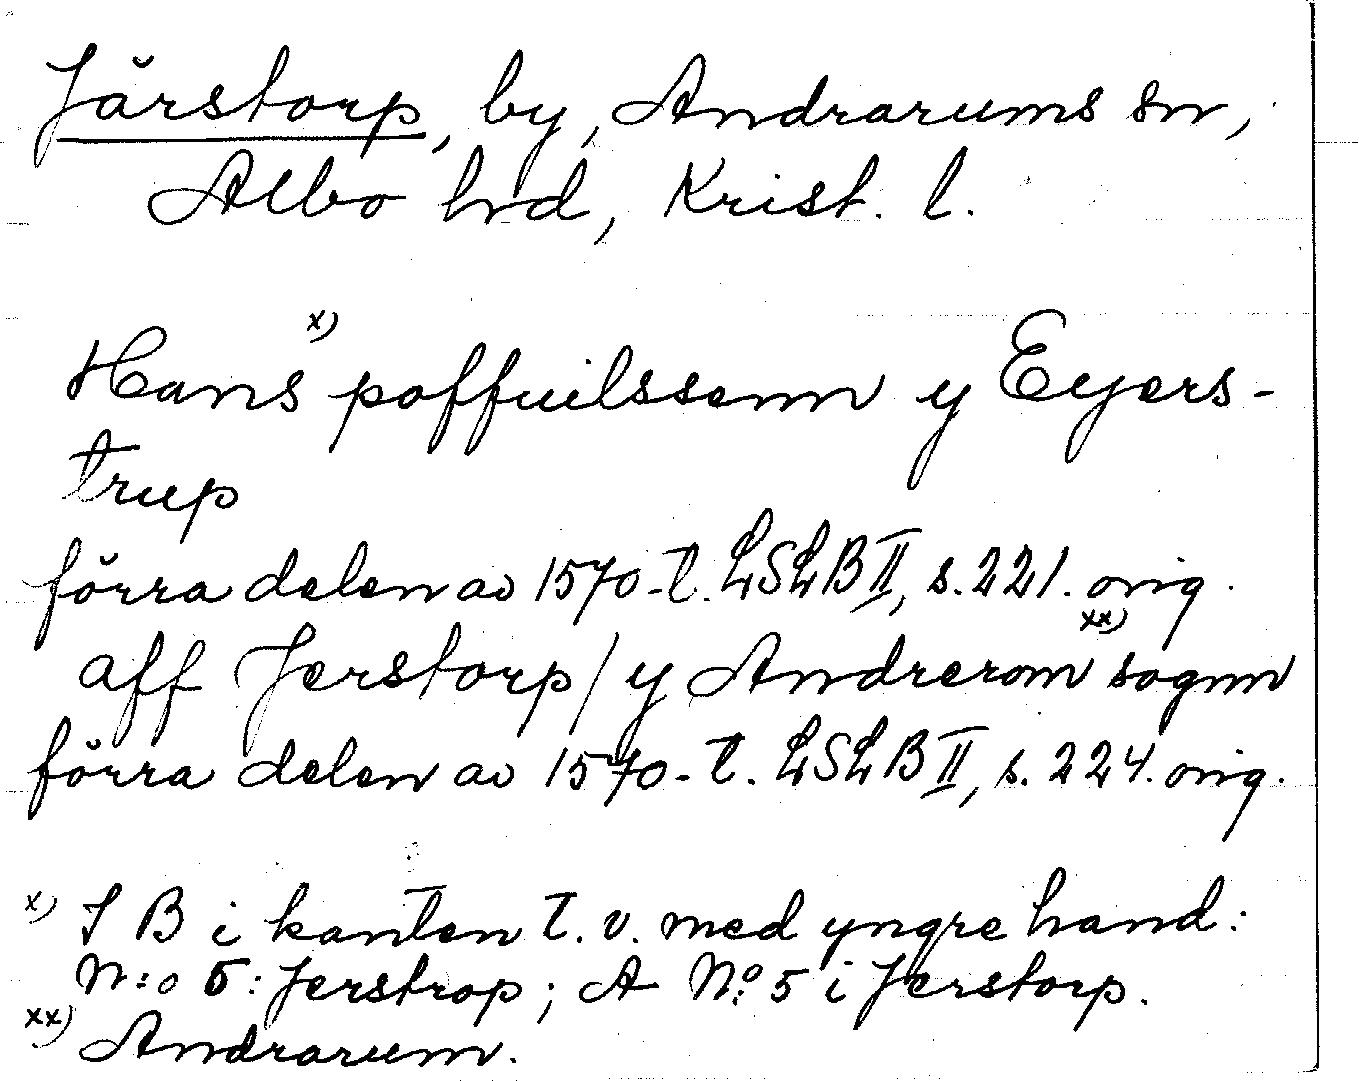 Järstorp, by, Andrarums sn,
Albo hrd, Krist. l.
Hans x) poffuilssenn y Eyers-
trup
förra delen av 1570-t. LSLB II, s. 221. orig.
aff Jerstorp / y Andrerom xx) sognn
förra delen av 1570-t. LSLB II, s. 224. orig.
x) I B i kanten t. v. med yngre hand:
N:o 5: Jerstrop; A No: 5 i Jerstorp.
xx) Andrarum.